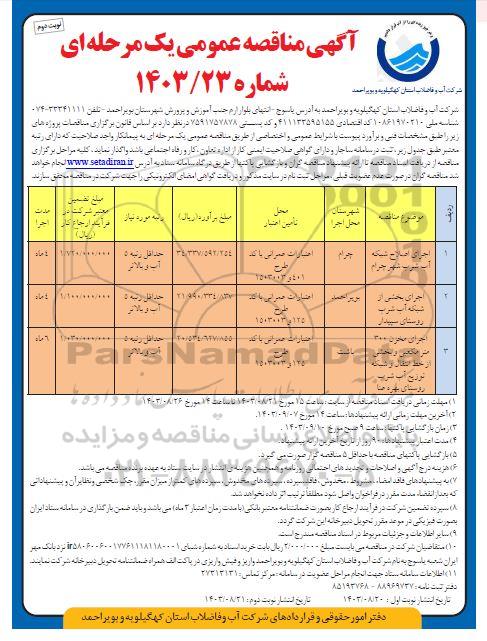 نوبت دوم
آگهی مناقصه عمومی یک مرحله ای
شماره ۱۴۰۳/۲۳
شرکت آب و فاضلاب استان کهگیلویه و بویراحمد
شرکت آب و فاضلاب استان کهگیلویه و بویراحمد به آدرس یاسوج - انتهای بلوار ارم جنب آموزش و پرورش شهرستان بویراحمد - تلفن ۳۳۳۴۱۱۱۱-۰۷۴
شناسه ملی ۱۰۸۶۱۹۷۰۲۱۰ کد اقتصادی ۴۱۱۱۳۳۵۹۵۱۵۵ و کد پستی ۷۵۹۱۷۵۷۸۷۸ در نظر دارد بر اساس قانون برگزاری مناقصات پروژه های
زیر را طبق مشخصات فنی و برآورد پیوست با شرایط عمومی و اختصاصی از طریق مناقصه عمومی یک مرحله ای به پیمانکار واجد صلاحیت که دارای رتبه
معتبر طبق جدول زیر، ثبت در سامانه ساجار و دارای گواهی صلاحیت ایمنی کار از اداره تعاون کار و رفاه اجتماعی باشد واگذار نماید. کلیه مراحل برگزاری
مناقصه از دریافت اسناد مناقصه تا ارائه پیشنهاد مناقصه گران و بازگشایی پاکتها از طریق درگاه سامانه ستاد به آدرس www.setadiran.ir انجام خواهد
شد مناقصه گران در صورت عدم عضویت قبلی، مراحل ثبت نام در سایت مذکور و دریافت گواهی امضای الکترونیکی را جهت شرکت در مناقصه محقق سازند.
ردیف موضوع مناقصه شهرستان محل اجرا محل تأمین اعتبار مبلغ برآورد (ریال) رتبه مورد نیاز مبلغ تضمین معتبر شرکت در فرآیند ارجاع کار (ریال) مدت اجرا
۱ اجرای اصلاح شبکه آب شرب شهر چرام چرام اعتبارات عمرانی با کد طرح ۱۵۰۳۰۰۳ و ۴۰۱ ۳۴/۳۳۷/۵۹۲/۲۵۴ حداقل رتبه ۵ آب و بالاتر ۱/۷۲۰/۰۰۰/۰۰۰ ۴ ماه
۲ اجرای بخشی از شبکه آب شرب روستای سپیدار بویراحمد اعتبارات عمرانی با کد طرح ۱۵۰۳۰۰۳ و ۱۲۵ ۲۱/۹۹۰/۳۳۴/۸۳۷ حداقل رتبه ۵ آب و بالاتر ۱/۱۰۰/۰۰۰/۰۰۰ ۴ ماه
۳ اجرای مخزن ۳۰۰ متر مکعبی و بخشی از خط انتقال و شبکه توزیع آب شرب روستای بهره هنا باشت اعتبارات عمرانی با کد طرح ۱۵۰۳۰۰۳ و ۱۲۵ ۲۰/۵۳۴/۶۲۷/۸۵۵ حداقل رتبه ۵ آب و بالاتر ۱/۰۳۰/۰۰۰/۰۰۰ ۶ ماه
۱) مهلت زمانی دریافت اسناد مناقصه از سایت: ساعت ۱۵ مورخ ۱۴۰۳/۰۸/۲۱ تا ساعت ۱۴ مورخ ۱۴۰۳/۰۸/۲۶
۲) آخرین مهلت زمانی ارائه پیشنهادها: ساعت ۱۴ مورخ ۱۴۰۳/۰۹/۰۷
۳) زمان بازگشایی پاکتها: ساعت ۹ صبح مورخ ۱۴۰۳/۰۹/۱۰
۴) مدت اعتبار پیشنهادها: ۹۰ روز از تاریخ آخرین ارائه پیشنهاد.
۵) بازگشایی پاکتهای مناقصه با حداقل ۵ مناقصه گزار صورت می گیرد.
۶) هزینه درج آگهی و اصلاحات و تجدید های احتمالی روزنامه و همچنین هزینه ی انتشار در سایت ستاد به عهده برنده مناقصه می باشد.
۷) به پیشنهادهای فاقد امضاء، مشروط، مخدوش، فاقد سپرده، سپرده های مخدوش، سپرده های کمتر از میزان مقرر، چک شخصی و نظایر آن و پیشنهاداتی
که بعد از انقضاء مدت مقرر در فراخوان واصل شود مطلقاً ترتیب اثر داده نخواهد شد.
۸) سپرده تضمین شرکت در فرآیند ارجاع کار بصورت ضمانتنامه معتبر بانکی (با مدت زمان اعتبار ۳ ماه) می باشد و باید ضمن بارگذاری در سامانه ستاد ایران
بصورت فیزیکی در موعد مقرر تحویل دبیرخانه این شرکت گردد.
۹) سایر اطلاعات و جزئیات مربوط در اسناد مناقصه مندرج است.
۱۰) متقاضیان شرکت در مناقصه می بایست مبلغ ۲/۰۰۰/۰۰۰ ریال بابت خرید اسناد به شماره شبای ir۵۸۰۶۰۰۶۰۱۷۷۶۱۱۱۸۱۱۸۰۰۱ نزد بانک مهر
ایران شعبه یاسوج به نام شرکت آب و فاضلاب استان کهگیلویه و بویراحمد واریز و فیش واریزی در پاکت الف همراه ضمانتنامه تحویل دبیرخانه شرکت نمایند.
۱۱) اطلاعات سامانه ستاد جهت انجام مراحل عضویت در سامانه: مرکز تماس: ۲۷۳۱۳۱۳۱
دفتر ثبت نام: ۸۸۹۶۹۷۳۷ - ۸۵۱۹۳۷۶۸
تاریخ انتشار نوبت اول: ۱۴۰۳/۰۸/۲۰ تاریخ انتشار نوبت دوم: ۱۴۰۳/۰۸/۲۱
دفتر امور حقوقی و قراردادهای شرکت آب و فاضلاب استان کهگیلویه و بویراحمد